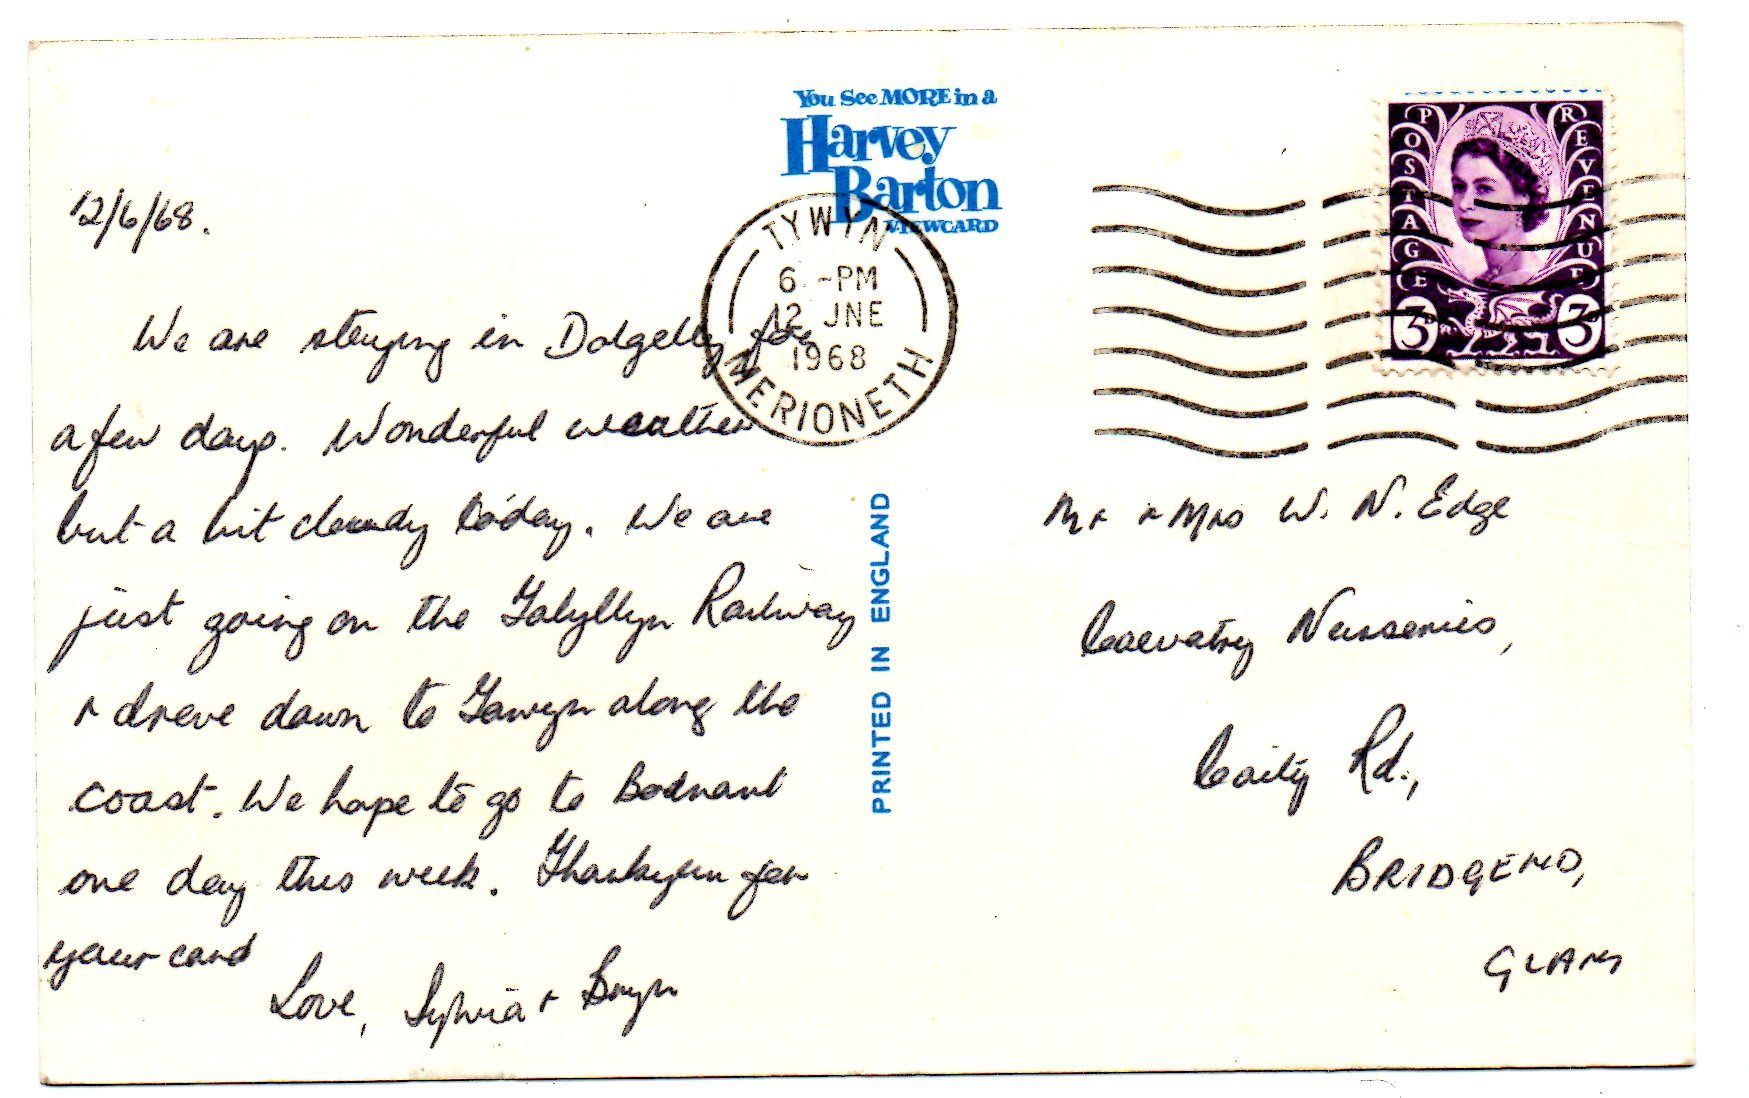 You See MORE in a
Harvey
Barton
VIEWCARD
POSTAGE
REVENUE
3D
3D
TYWYN
6. -PM
12 JNE
1968
MERIONETH
12/6/68.
We are staying in Dolgelly for
a few days. Wonderful weather
but a bit cloudy today. We are
just going on the Talyllyn Railway
& drove down to Towyn along the
coast. We hope to go to Bodnant
one day this week. Thankyou for
your card
Love, Sylvia & Bryn
PRINTED IN ENGLAND
Mr & Mrs W. N. Edge
Nurseries,
Coity Rd.,
BRIDGEND,
GLAM